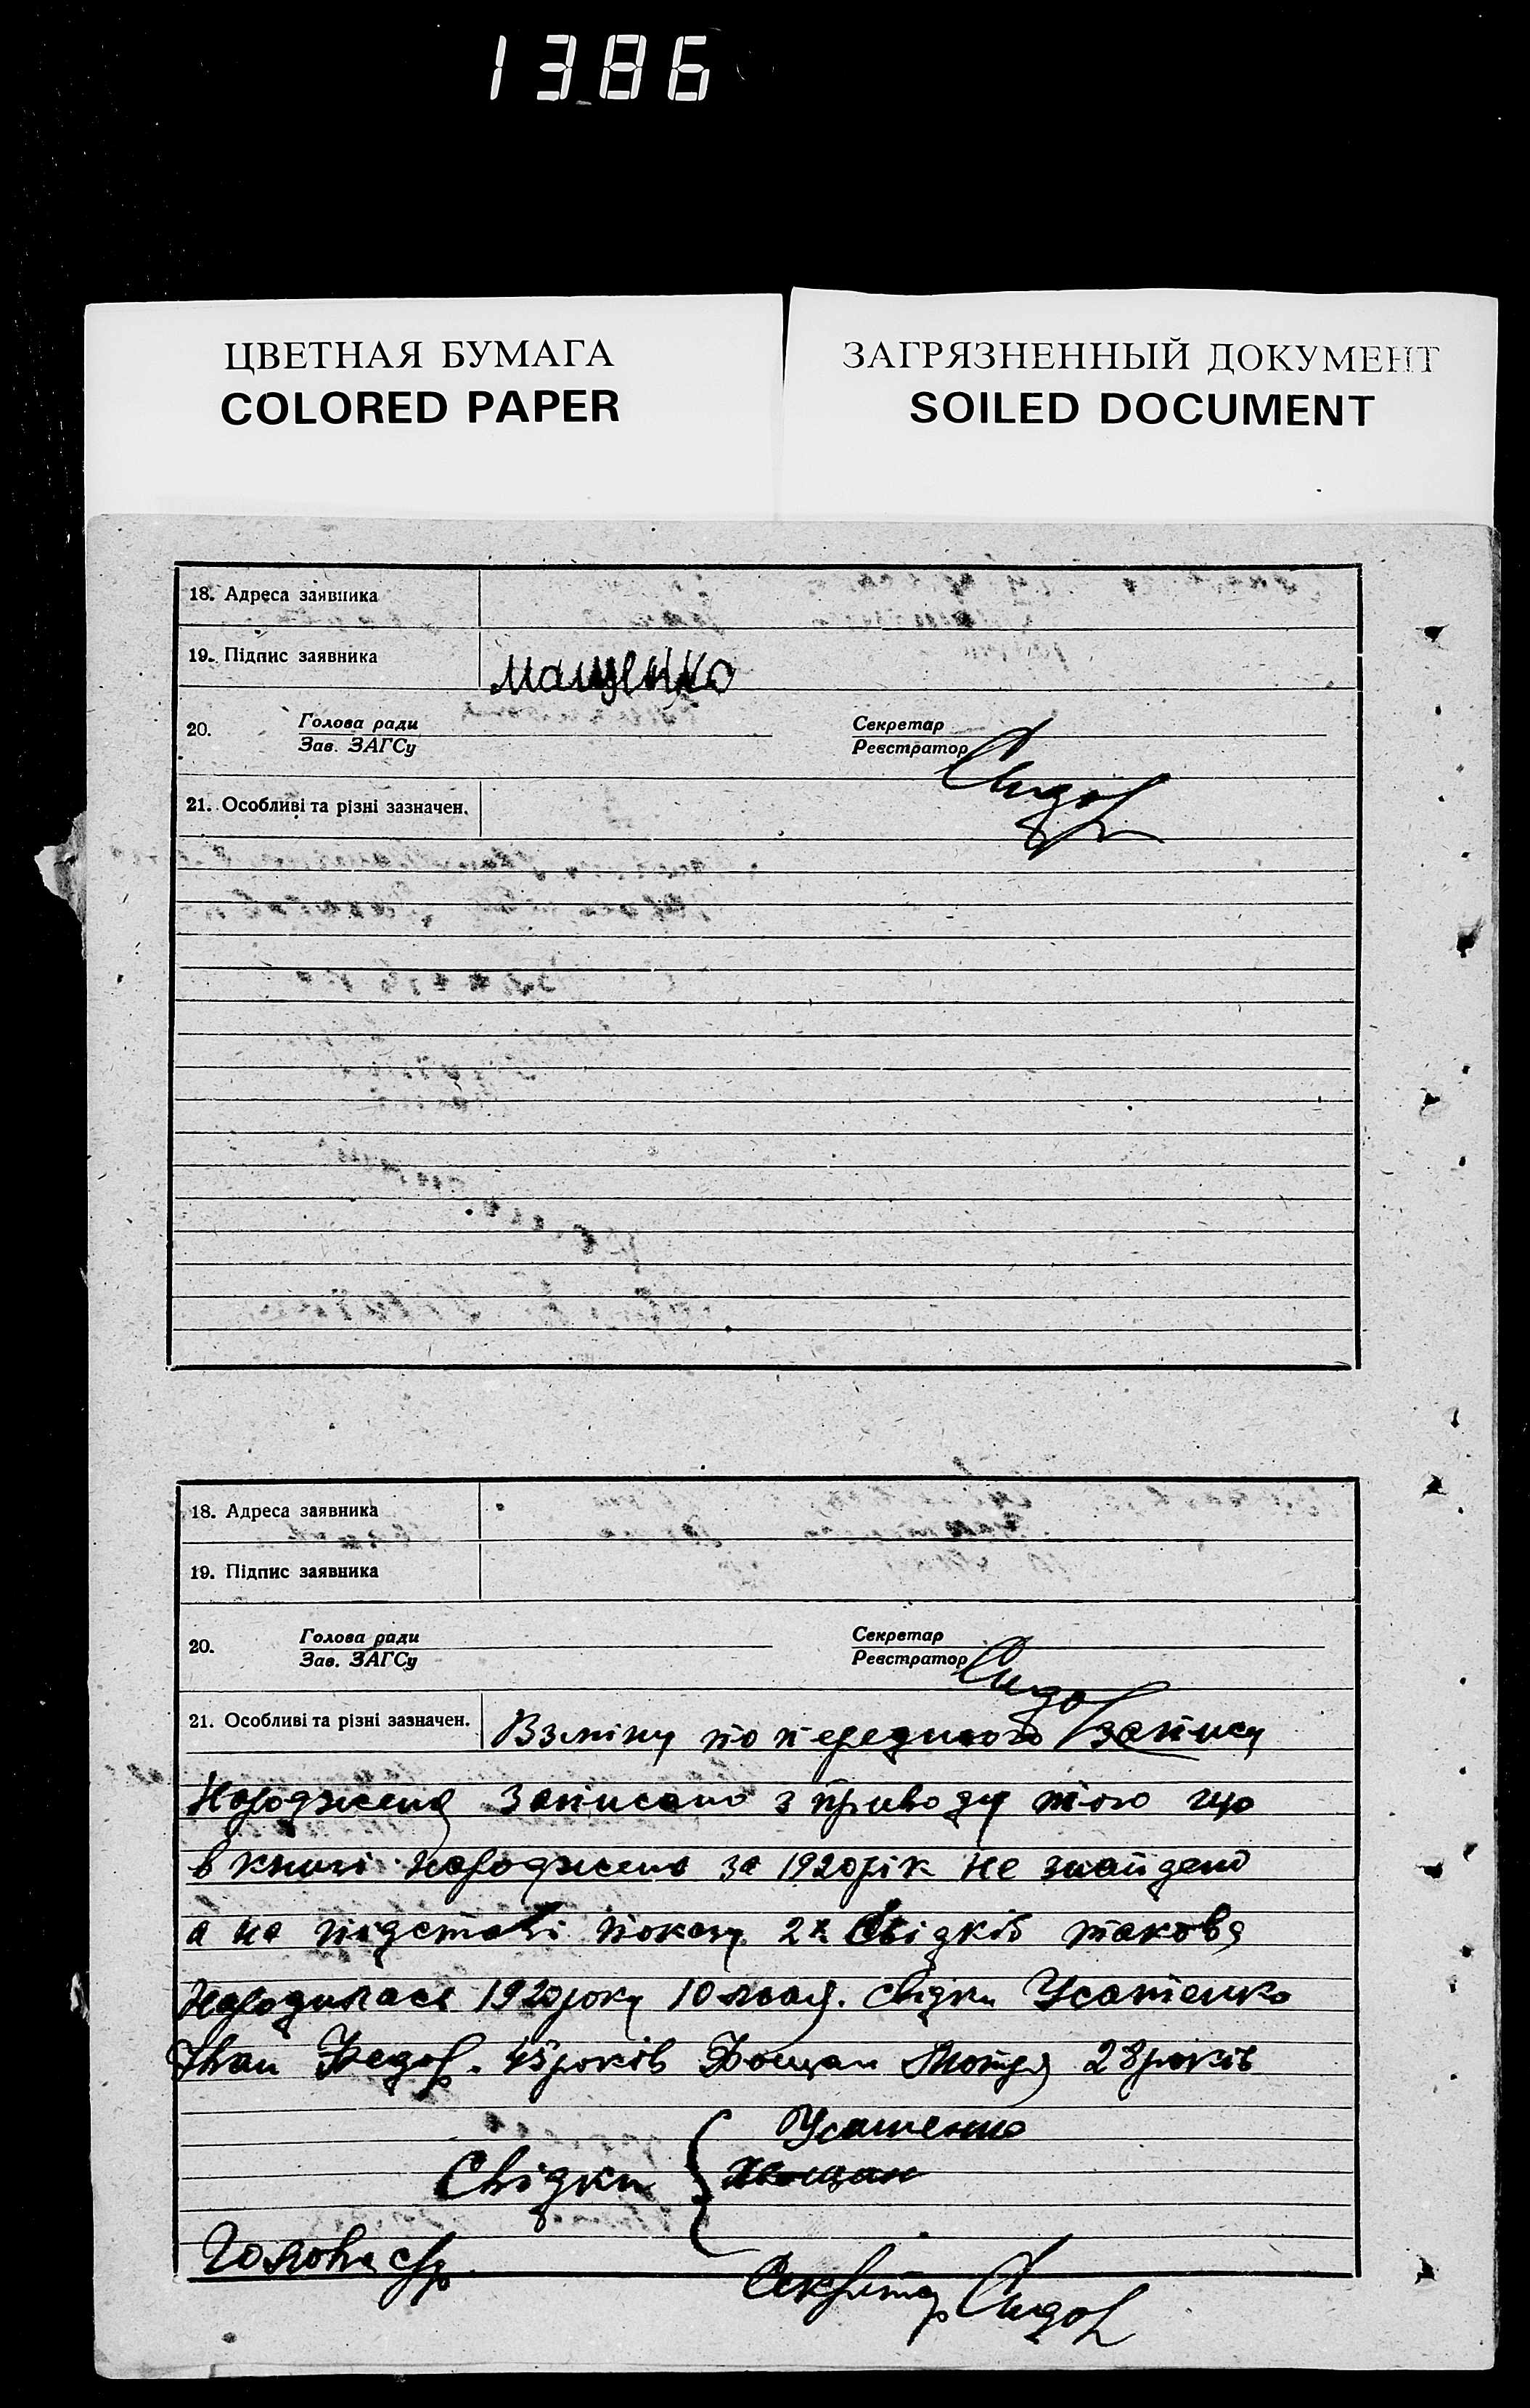 1386
ЦВЕТНАЯ БУМАГА
COLORED PAPER
ЗАГРЯЗНЕННЫЙ ДОКУМЕНТ
SOILED DOCUMENT
18. Адреса заявника
19. Підпис заявника Мащенко
20. Голова ради Секретар
Зав. ЗАГСу Реєстратор
21. Особливі та різні зазначен.
18. Адреса заявника
19. Підпис заявника
20. Голова ради Секретар
Зав. ЗАГСу Реєстратор
21. Особливі та різні зазначен. Взміну попереднього запису
Народження записано з приводу того що
в книзі народжень за 1920 рік не знайдено
а на підставі показу 2х свідків такова
Народилась 1920 року 10 мая. свідки Усатенко
Іван Федор. 45 років Хощан Мотря 28 років
Усатенко
Свідки {
Голова с/р
Секретар